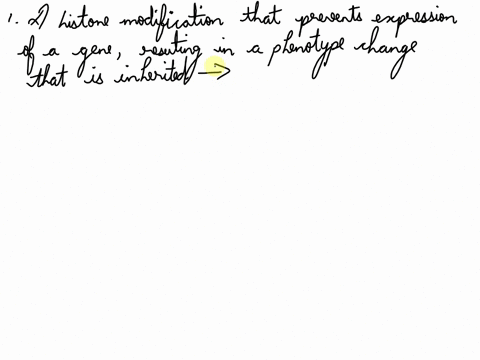 1. 2) histone modification that prevents expression
of a gene, resuting in a phenotype change
that is inherited →